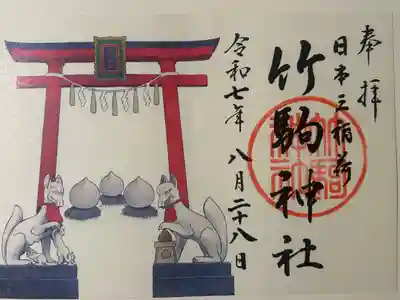 奉拝
日本三稲荷
竹駒神社
令和七年 八月二十八日